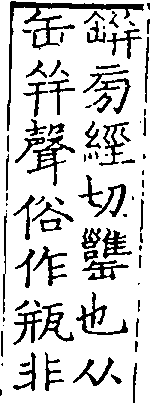 缾旁經切罋也从
缶幷聲俗作瓶非